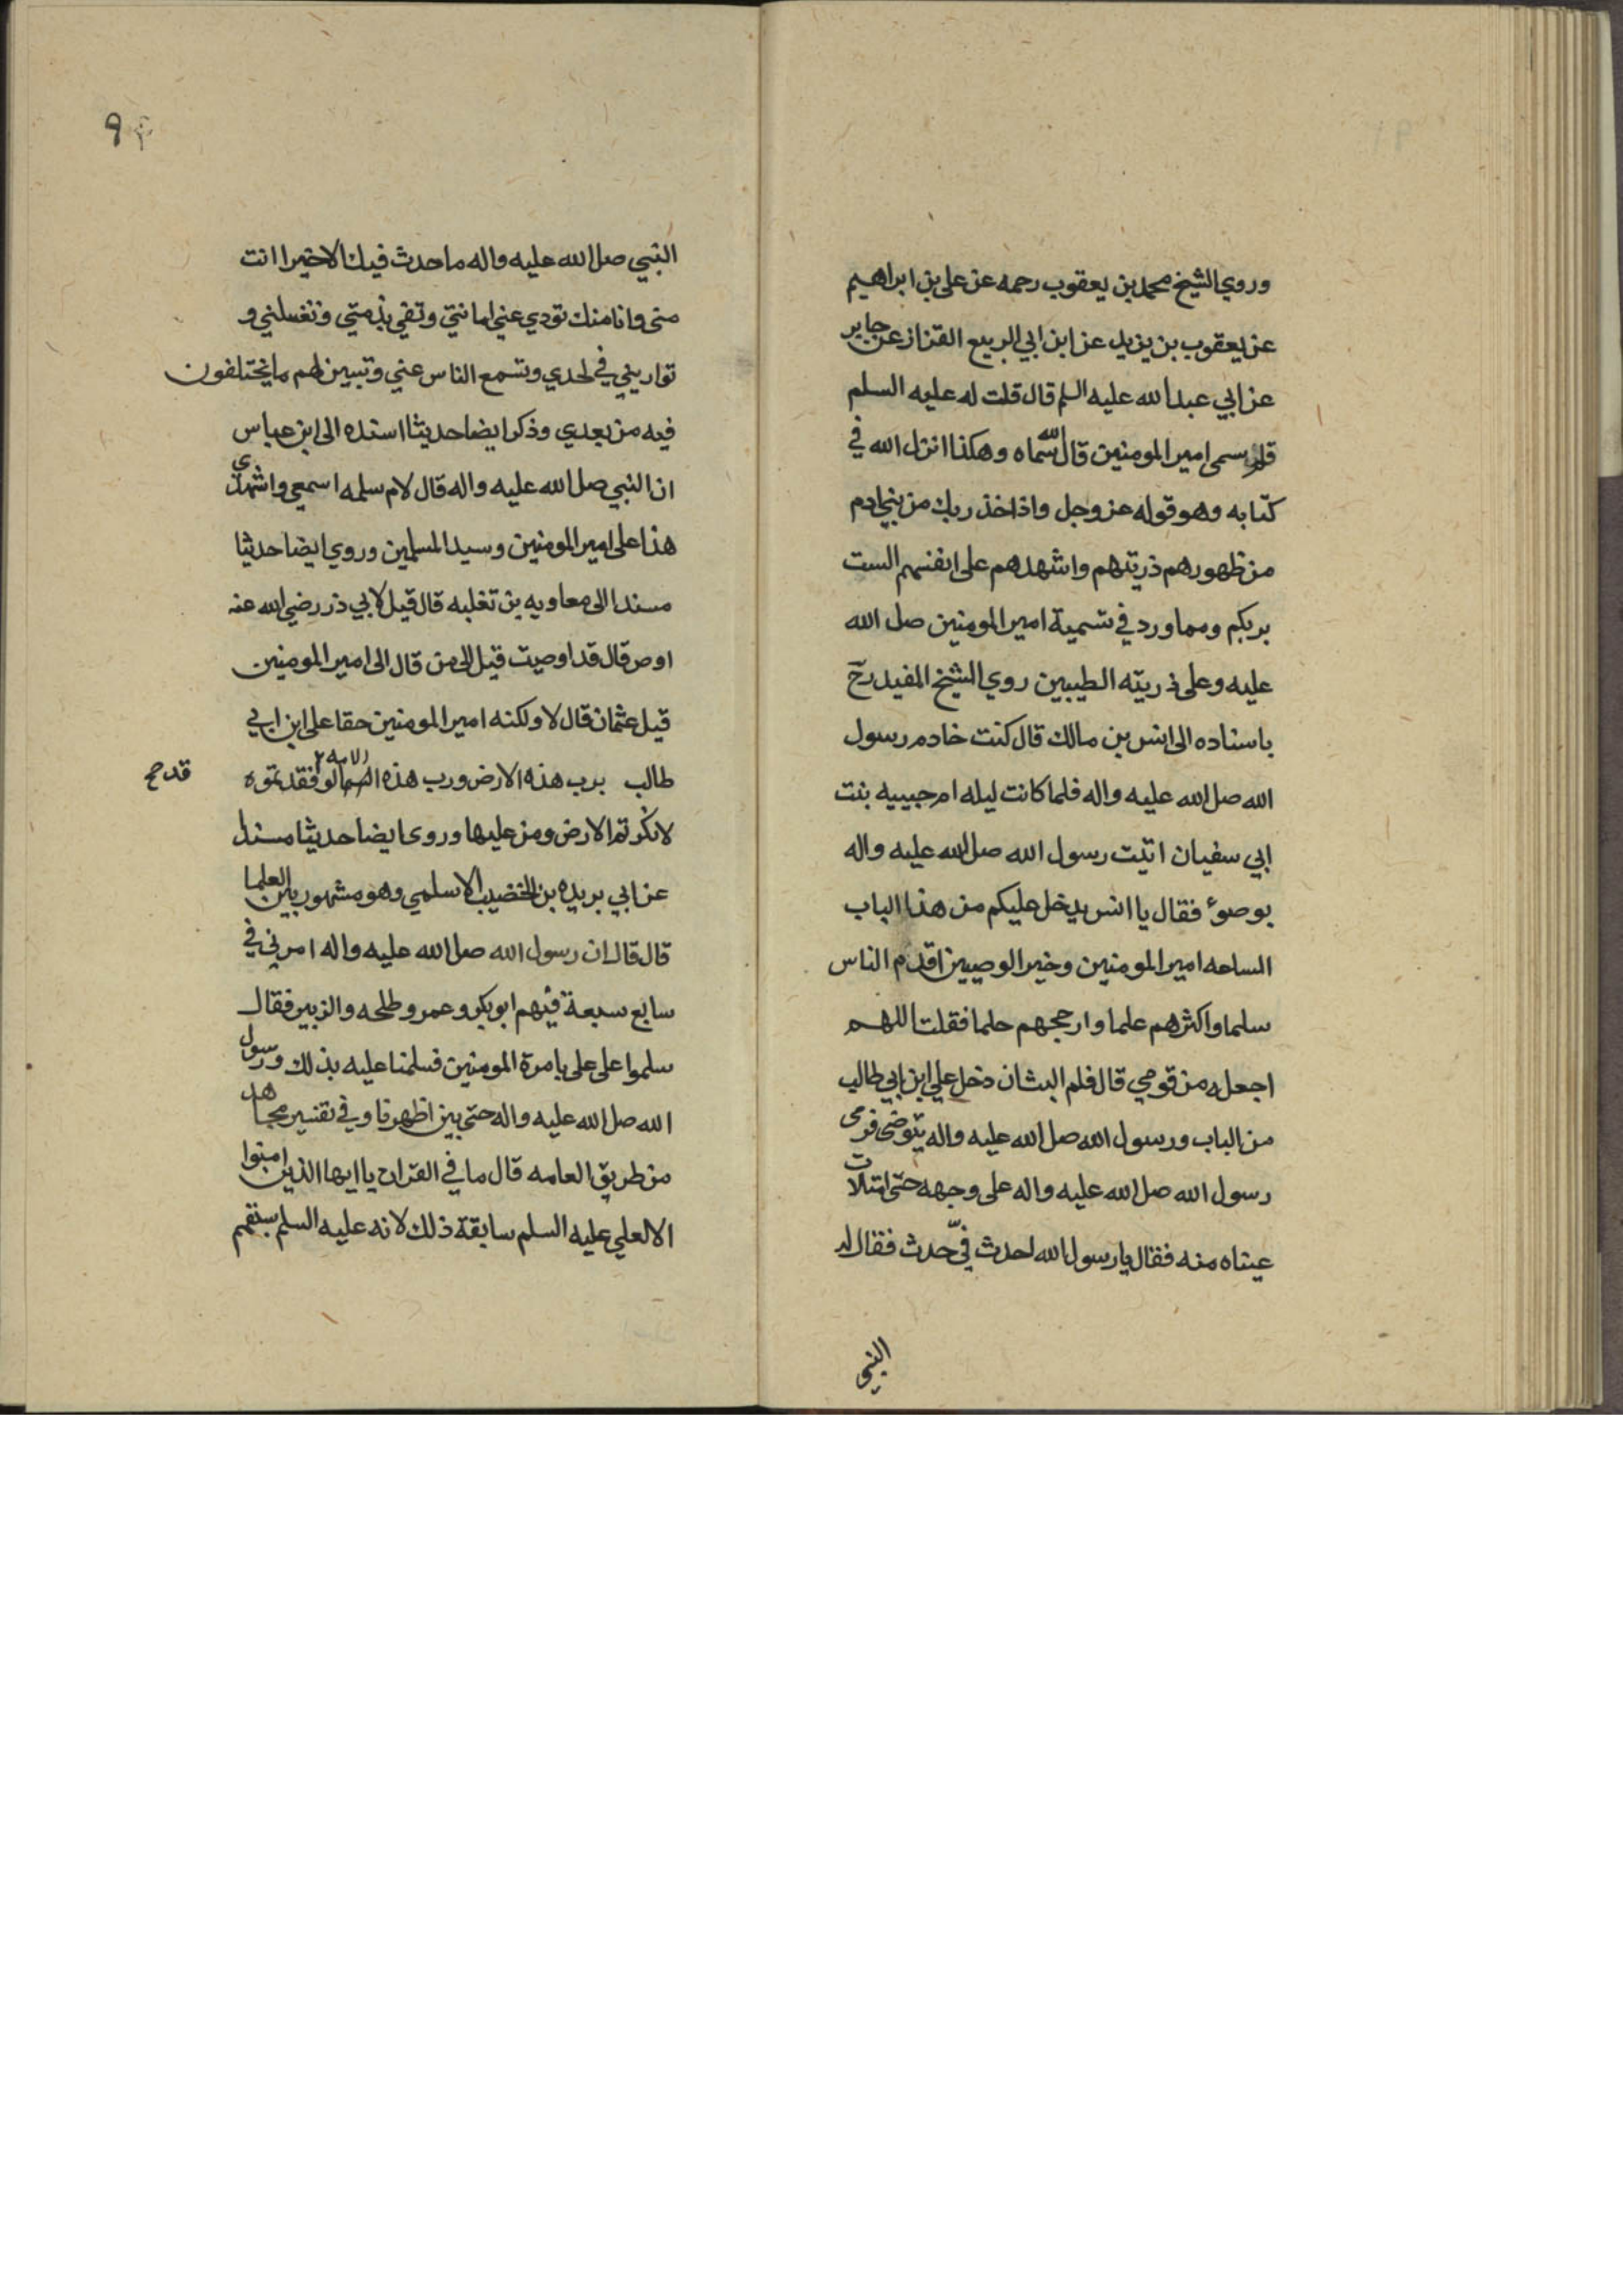 وروي الشيخ محمد بن يعقوب رحمه عن علي بن ابراهيم
عن يعقوب بن يزيد عن ابن ابي الربيع القزاز عن جابر
عن ابي عبد الله عليه السلم قال قلت له عليه السلم
قلم سمي امير المومنين قال الله سماه وهكذا انزل الله في
كتابه وهو قوله عز وجل واذ اخذ ربك من بني ادم
من ظهورهم ذريتهم واشهدهم على انفسهم الست
بربكم ومما ورد في تسمية امير المومنين صل الله
عليه وعلى ذريته الطيبين روي الشيخ المفيد رح
باسناده الى انس بن مالك قال كنت خادم رسول
الله صل الله عليه واله فلما كانت ليله ام حبيبه بنت
ابي سفيان اتيت رسول الله صل الله عليه واله
بوضوء فقال يا انس يدخل عليكم من هذا الباب
الساعه امير المومنين وخير الوصيين اقدم الناس
سلما واكثرهم علما وارجحهم حلما فقلت اللهم
اجعله من قومي قال فلم البث ان دخل علي ابن ابي طالب
من الباب ورسول الله صل الله عليه واله يتوضى فرمى
رسول الله صل الله عليه واله على وجهه حتى امتلات
عيناه منه فقال يا رسول الله احدث في حدث فقال له
النبي
٩
النبي صل الله عليه واله ما حدث فيك الا خيرا انت
مني وانا منك تودي عني امانتي وتفي بذمتي وتغسلني و
تواريني في لحدي وتسمع الناس عني وتبيين لهم ما يختلفون
فيه من بعدي وذكر ايضا حديثا اسنده الى ابن عباس
ان النبي صل الله عليه واله قال لام سلمه اسمعي واشهدي
هذا علي امير المومنين وسيد المسلمين وروي ايضا حدثيا
مسندا الى معاويه بن تغلبه قال قيل لابي ذر رضي الله عنه
اوص قال قد اوصيت قيل الى من قال الى امير المومنين
قيل عثمان قال لا ولكنه امير المومنين حقا علي ابن ابي
طالب برب هذه الارض ورب هذه الامه لو فقد تموه
قد صح
لانكرتم الارض ومن عليها وروى ايضا حديثا مسندا
عن ابي بريده بن الخضيب الاسلمي وهو مشهور بين العلما
قال قال ان رسول الله صل الله عليه واله امرني في
سابع سبعة فيهم ابو بكر وعمر وطلحه والزبير فقال
سلموا على علي بامرة المومنين فسلمنا عليه بذلك ورسول
الله صل الله عليه واله حتى بين اظهرنا وفي تفسير مجاهد
من طريق العامه قال ما في القران يا ايها الذين امنوا
الا لعلي عليه السلم سابقة ذلك لانه عليه السلم سبقهم